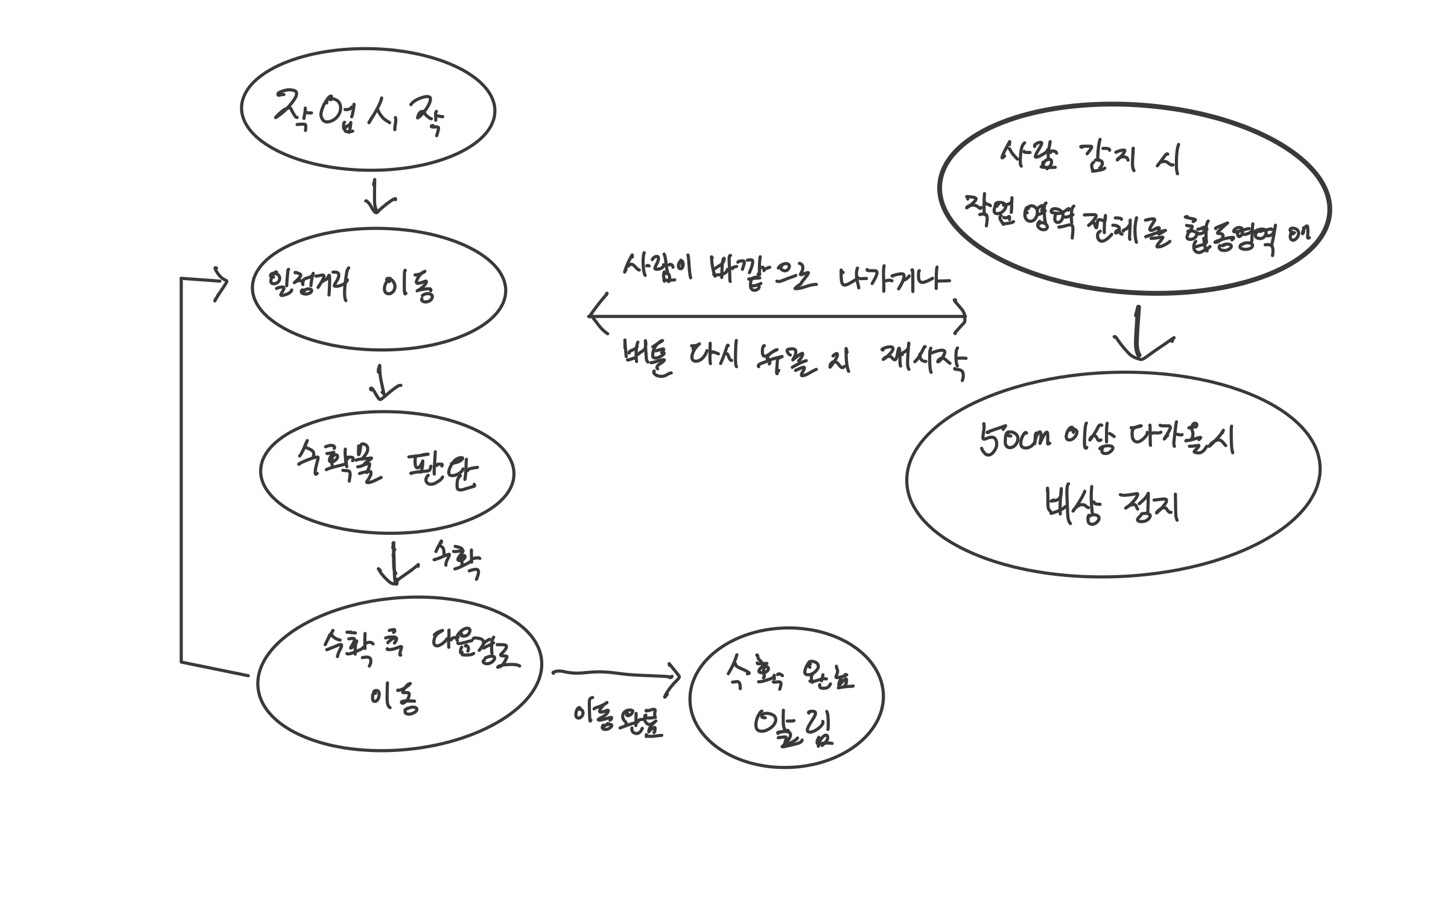 작업시작
일정거리 이동
수확물 판단
수확
수확 후 다음경로
이동
이동완료
수확 완료
알림
사람이 바깥으로 나가거나
버튼 다시 누를 시 재시작
사람 감지 시
작업영역 전체를 협동영역
50cm 이상 다가올시
비상 정지